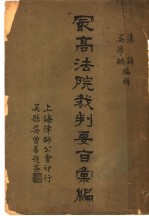 孫鏘
吳學鵬編輯
最高法院裁判要旨彙編
上海律師公會印行
吳縣吳曾善題簽